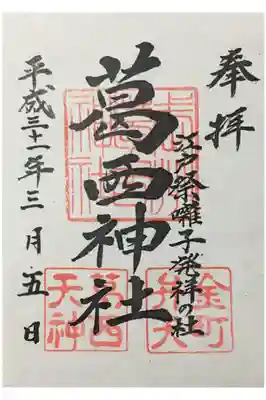 奉拝
江戸祭囃子発祥の社
葛西神社
平成三十一年三月五日
葛西神社
金町弁天
葛西天神